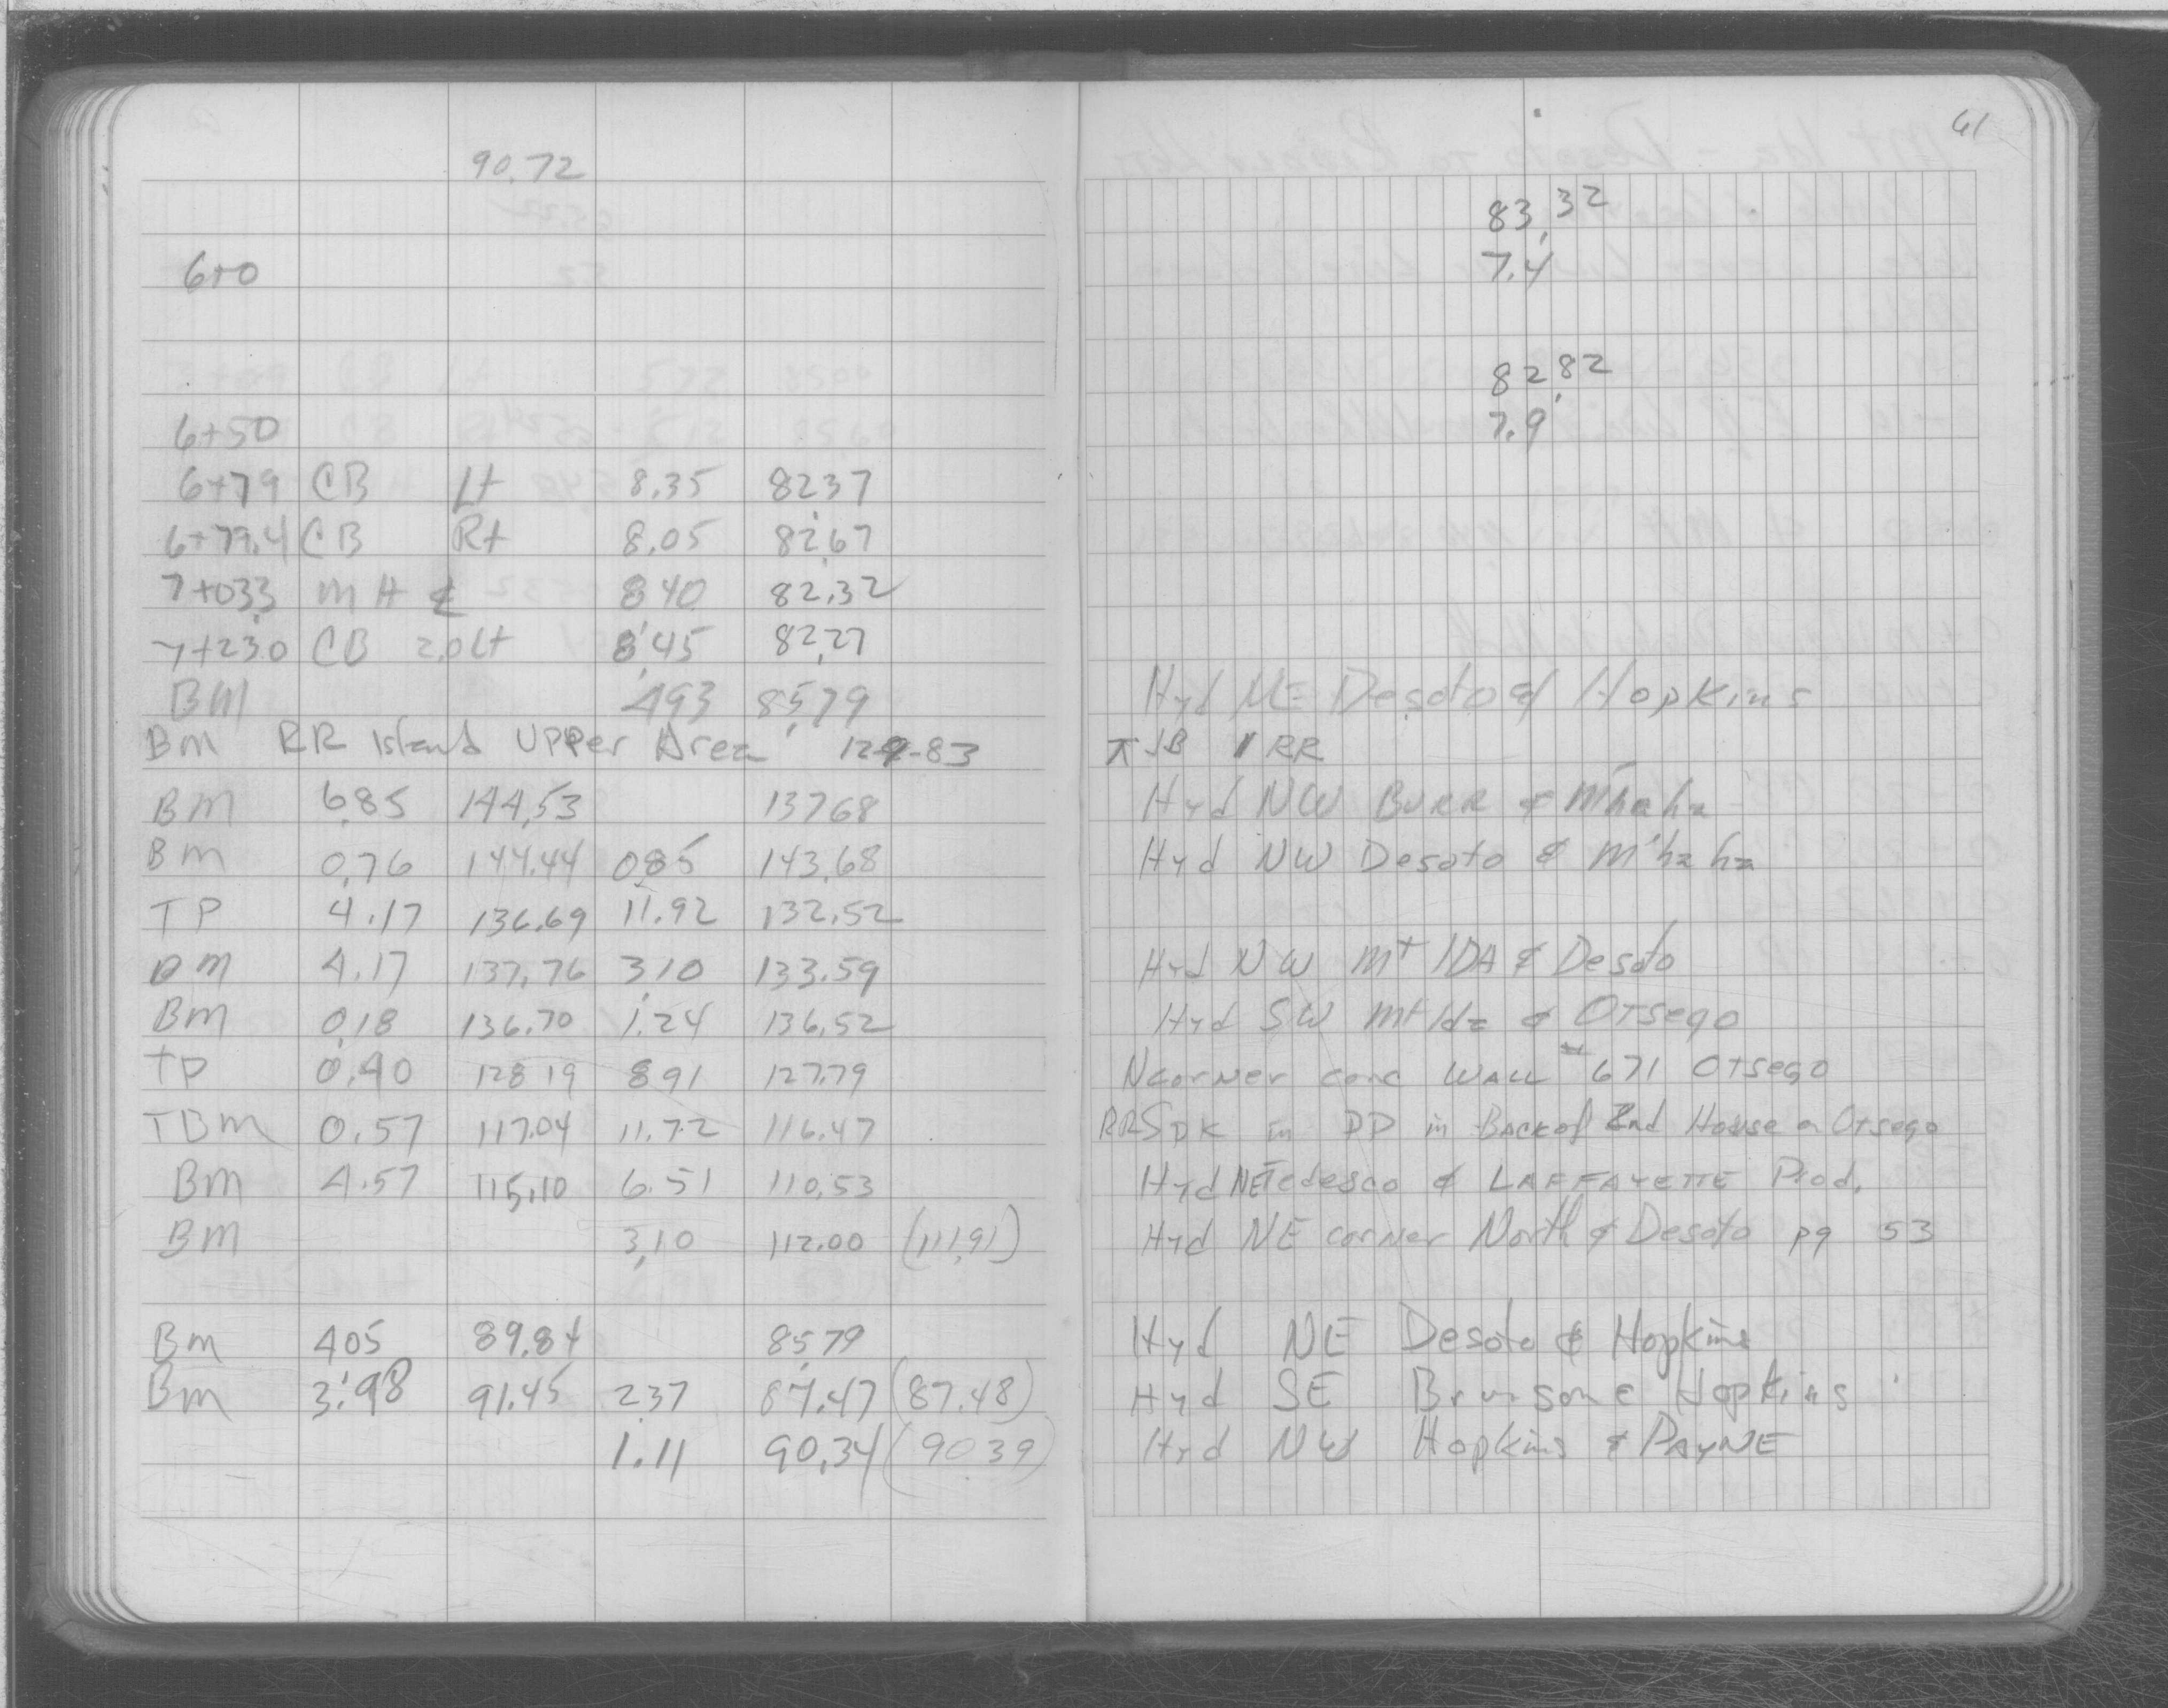 61
90.72
83.32
6+0 7.4
82.82
6+50 7.9
6+79 CB Lt 8.35 82.37
6+79.4 CB Rt 8.05 82.67
7+03.3 MH ℄ 8.40 82.32
7+23.0 CB 2.0 Lt 8.45 82.27
BM 4.93 85.79 Hyd NE Desoto & Hopkins
Bm RR Island Upper Area 12-9-83 ⊼ JB RR
BM 6.85 144.53 137.68 Hyd NW BURR & M'haha
Bm 0.76 144.44 0.85 143.68 Hyd NW Desoto & M'haha
TP 4.17 136.69 11.92 132.52
BM 4.17 137.76 3.10 133.59 Hyd NW Mt IDA & Desoto
BM 0.18 136.70 1.24 136.52 Hyd SW Mt Ida & OTsego
TP 0.40 128.19 8.91 127.79 N corner conc WALL #671 OTsego
TBM 0.57 117.04 11.72 116.47 RRSpK in PP in Back of 2nd House on OTsego
BM 4.57 115.10 6.51 110.53 Hyd NE Tedesco & LAFFAYETTE Prod.
BM 3.10 112.00 (111.91) Hyd NE corner North & Desoto pg 53
Bm 4.05 89.84 85.79 Hyd NE Desoto & Hopkins
Bm 3.98 91.45 2.37 87.47 (87.48) Hyd SE Brunson & Hopkins
1.11 90.34 (90.39) Hyd NW Hopkins & PAYNE